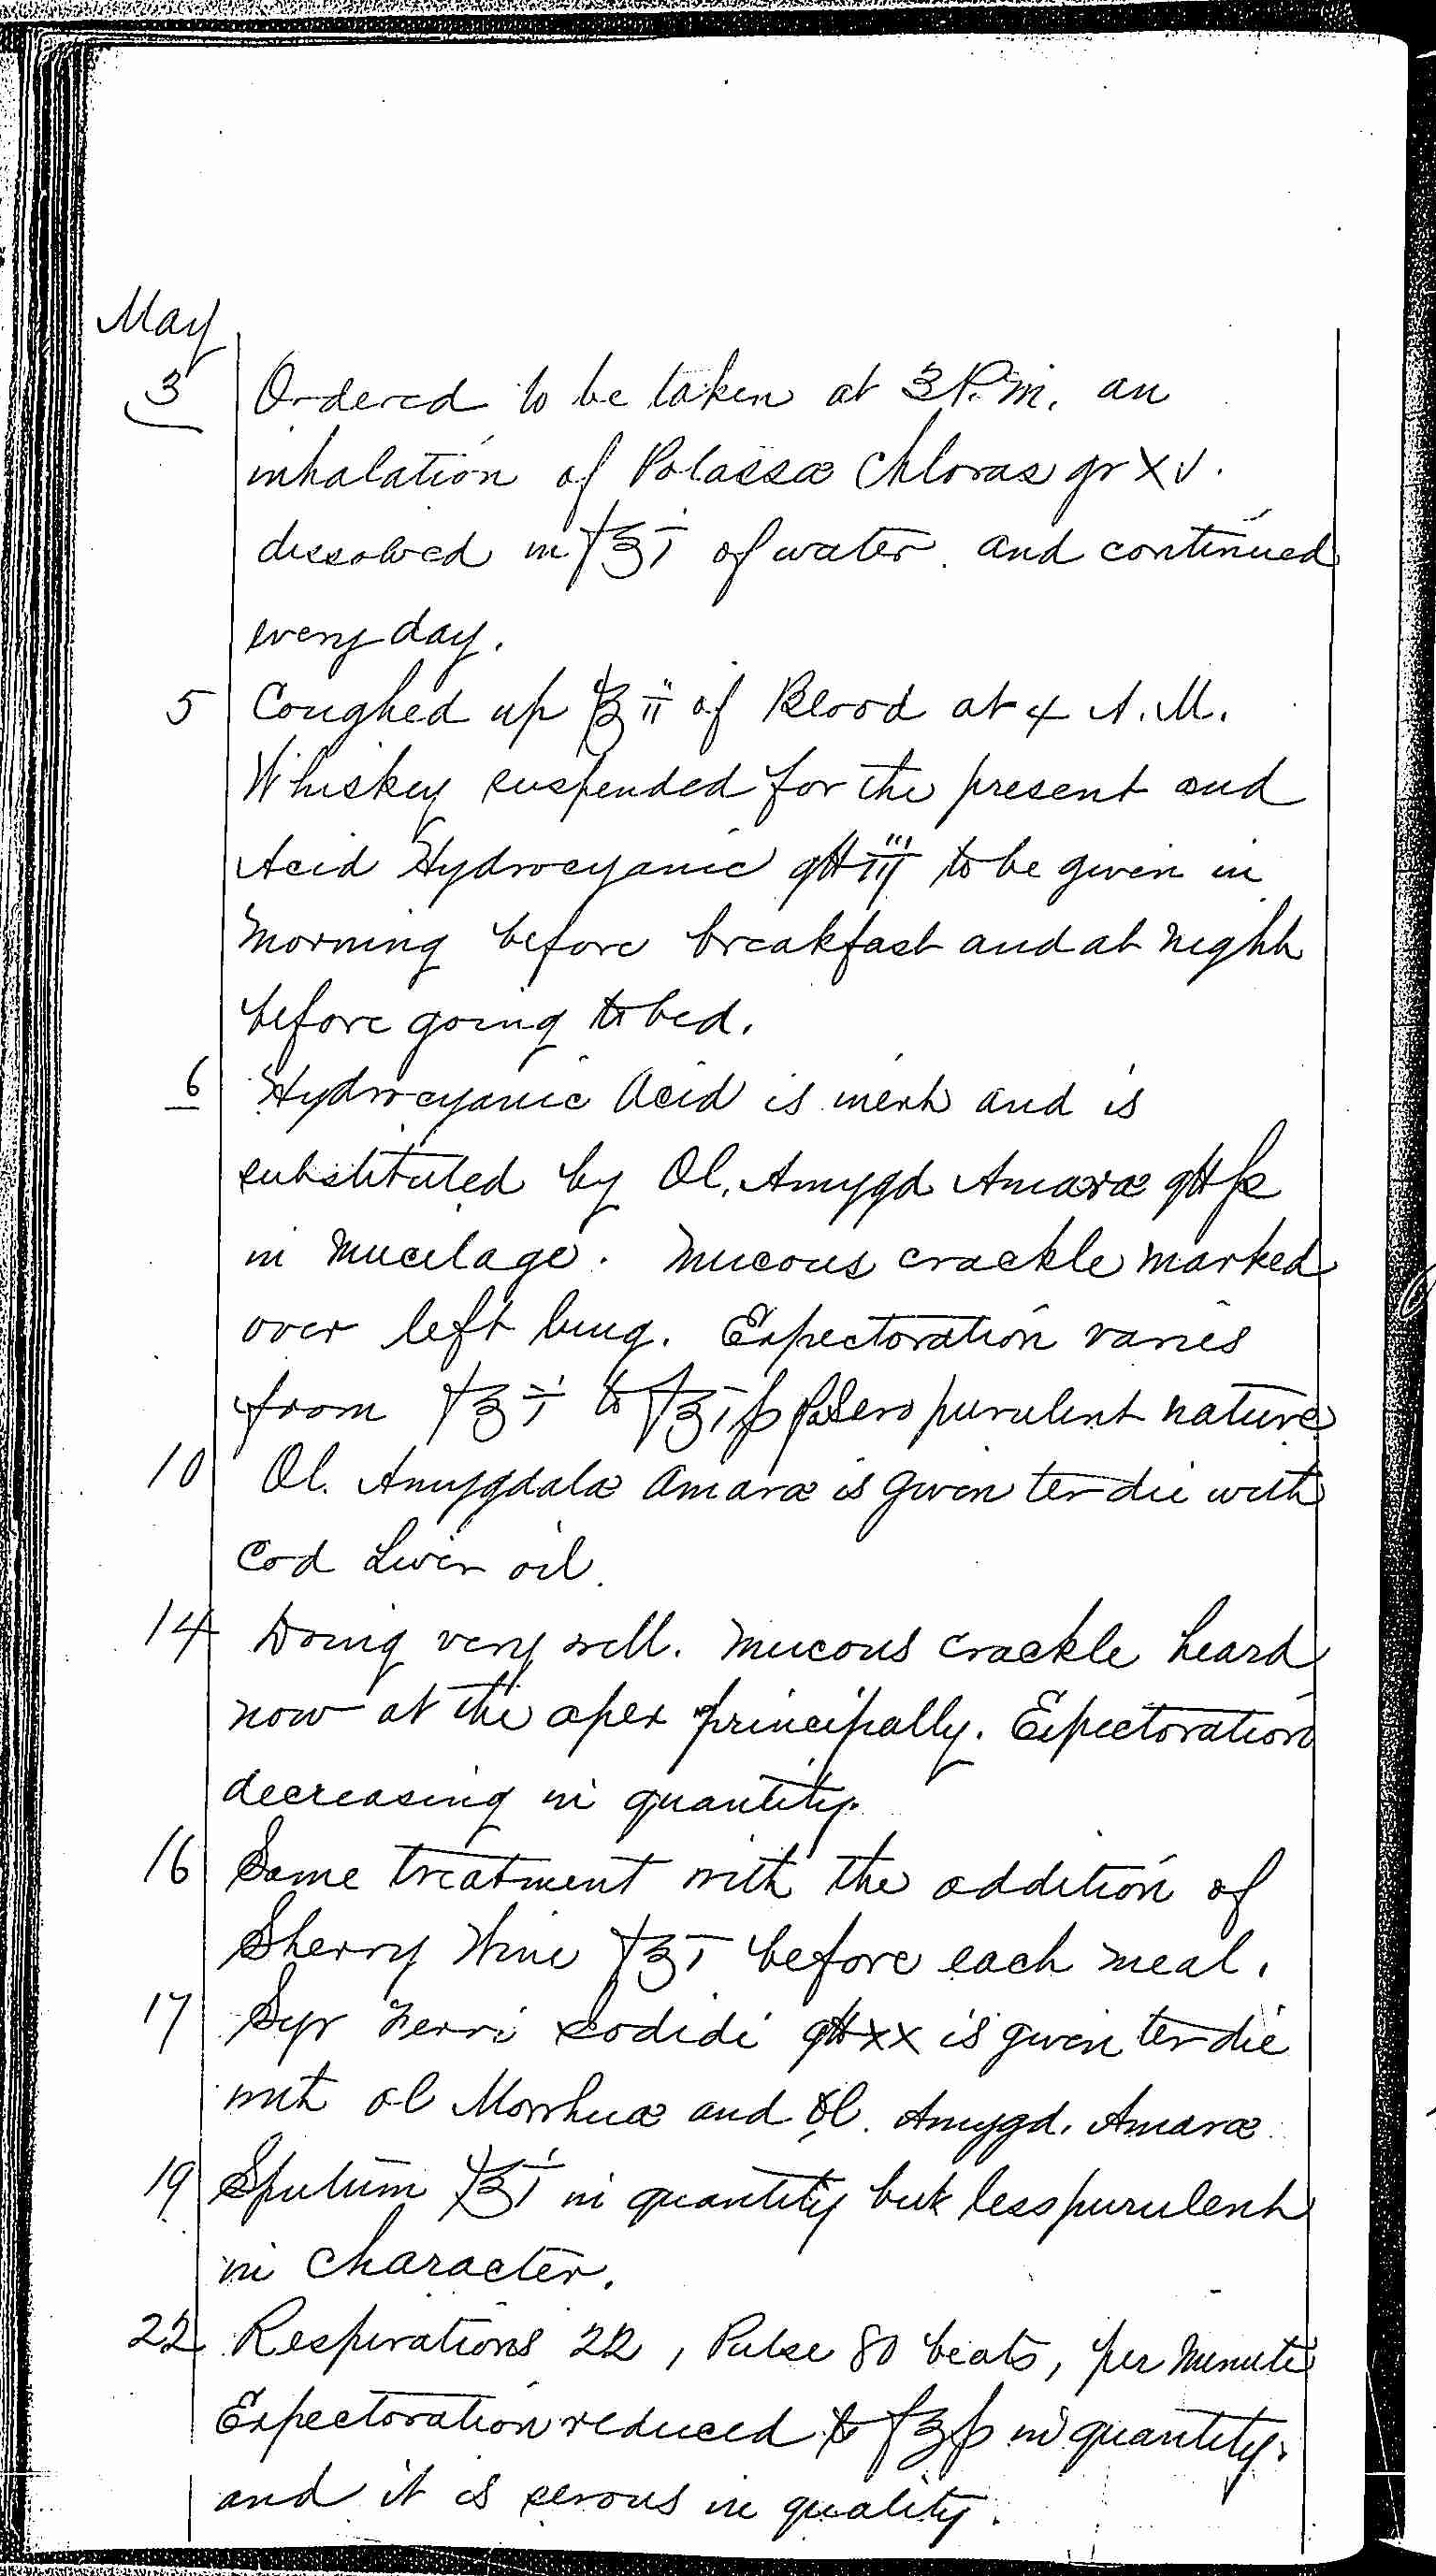 May
3 Ordered to be taken at 3 P.M. an
inhalation of Potassæ Chloras gr XV.
dissolved in f℥i of water. and continued
every day.
5 Coughed up f℥ii of Blood at 4 A.M.
Whiskey suspended for the present and
Acid Hydrocyanic gtt iii to be given in
morning before breakfast and at night
before going to bed.
6 Hydrocyanic Acid is inert and is
substituted by Ol. Amygd Amaræ gtt ſs
in mucilage. Mucous crackle marked
over left lung. Expectoration varies
from f℥i to f℥iſs Sero purulent nature
10 Ol. Amygdalæ Amaræ is given ter die with
Cod Liver oil.
14 Doing very well. Mucous crackle heard
now at the apex principally. Expectoration
decreasing in quantity.
16 Same treatment with the addition of
Sherry Wine f℥i before each meal.
17 Syr Ferri Iodidi gtt xx is given ter die
with ol Morrhuæ and Ol. Amygd. Amaræ
19 Sputum f℥i in quantity but less purulent
in character.
22 Respirations 22, Pulse 80 beats, per minute
Expectoration reduced to f℥ſs in quantity.
and it is serous in quality.